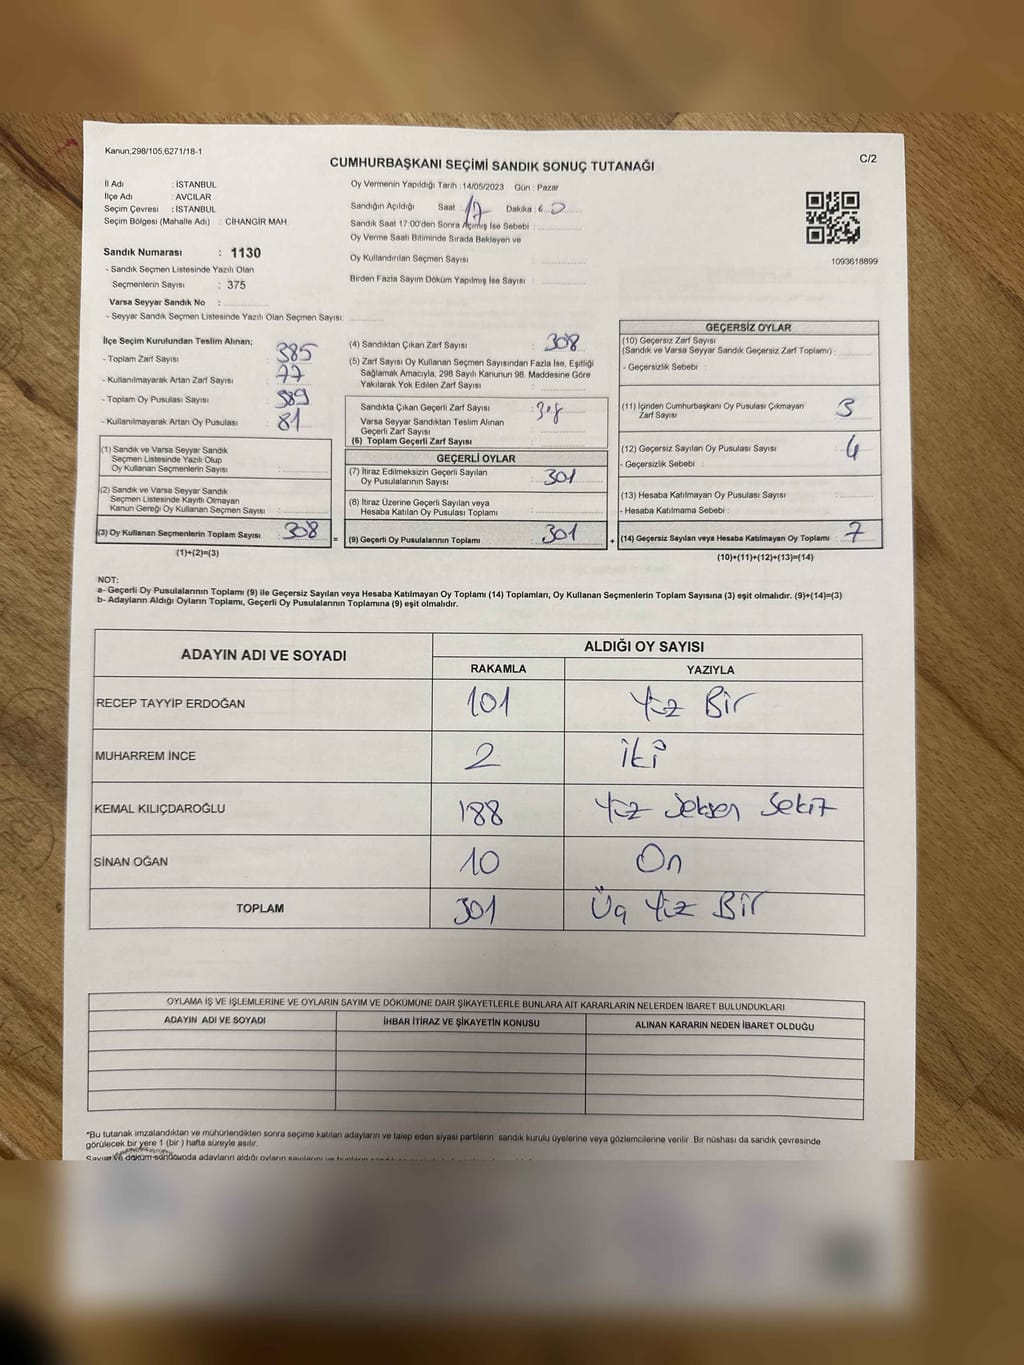 Kanun;298/105,6271/18-1
C/2
CUMHURBAŞKANI SEÇİMİ SANDIK SONUÇ TUTANAĞI
İl Adı : İSTANBUL
İlçe Adı : AVCILAR
Seçim Çevresi : İSTANBUL
Seçim Bölgesi (Mahalle Adı) : CİHANGİR MAH.
Sandık Numarası : 1130
- Sandık Seçmen Listesinde Yazılı Olan
Seçmenlerin Sayısı : 375
Varsa Seyyar Sandık No :
- Seyyar Sandık Seçmen Listesinde Yazılı Olan Seçmen Sayısı:
Oy Vermenin Yapıldığı Tarih : 14/05/2023 Gün : Pazar
Sandığın Açıldığı Saat : 17 Dakika :
Sandık Saat 17:00'den Sonra Açılmış İse Sebebi :
Oy Verme Saati Bitiminde Sırada Bekleyen ve
Oy Kullandırılan Seçmen Sayısı :
Birden Fazla Sayım Döküm Yapılmış İse Sayısı :
1093618899
İlçe Seçim Kurulundan Teslim Alınan;
- Toplam Zarf Sayısı : 385
- Kullanılmayarak Artan Zarf Sayısı : 77
- Toplam Oy Pusulası Sayısı : 389
- Kullanılmayarak Artan Oy Pusulası : 81
(1) Sandık ve Varsa Seyyar Sandık
Seçmen Listesinde Yazılı Olup
Oy Kullanan Seçmenlerin Sayısı :
(2) Sandık ve Varsa Seyyar Sandık
Seçmen Listesinde Kayıtlı Olmayan
Kanun Gereği Oy Kullanan Seçmen Sayısı :
(3) Oy Kullanan Seçmenlerin Toplam Sayısı : 308
(1)+(2)=(3)
=
(4) Sandıktan Çıkan Zarf Sayısı : 308
(5) Zarf Sayısı Oy Kullanan Seçmen Sayısından Fazla İse, Eşitliği
Sağlamak Amacıyla, 298 Sayılı Kanunun 98. Maddesine Göre
Yakılarak Yok Edilen Zarf Sayısı :
Sandıkta Çıkan Geçerli Zarf Sayısı : 308
Varsa Seyyar Sandıktan Teslim Alınan
Geçerli Zarf Sayısı :
(6) Toplam Geçerli Zarf Sayısı :
GEÇERLİ OYLAR
(7) İtiraz Edilmeksizin Geçerli Sayılan
Oy Pusulalarının Sayısı : 301
(8) İtiraz Üzerine Geçerli Sayılan veya
Hesaba Katılan Oy Pusulası Toplamı :
(9) Geçerli Oy Pusulalarının Toplamı : 301
+
GEÇERSİZ OYLAR
(10) Geçersiz Zarf Sayısı
(Sandık ve Varsa Seyyar Sandık Geçersiz Zarf Toplamı) :
- Geçersizlik Sebebi :
(11) İçinden Cumhurbaşkanı Oy Pusulası Çıkmayan
Zarf Sayısı : 3
(12) Geçersiz Sayılan Oy Pusulası Sayısı : 4
- Geçersizlik Sebebi :
(13) Hesaba Katılmayan Oy Pusulası Sayısı :
- Hesaba Katılmama Sebebi :
(14) Geçersiz Sayılan veya Hesaba Katılmayan Oy Toplamı : 7
(10)+(11)+(12)+(13)=(14)
NOT:
a- Geçerli Oy Pusulalarının Toplamı (9) ile Geçersiz Sayılan veya Hesaba Katılmayan Oy Toplamı (14) Toplamları, Oy Kullanan Seçmenlerin Toplam Sayısına (3) eşit olmalıdır. (9)+(14)=(3)
b- Adayların Aldığı Oyların Toplamı, Geçerli Oy Pusulalarının Toplamına (9) eşit olmalıdır.
ADAYIN ADI VE SOYADI
ALDIĞI OY SAYISI
RAKAMLA YAZIYLA
RECEP TAYYİP ERDOĞAN 101 Yüz Bir
MUHARREM İNCE 2 iki
KEMAL KILIÇDAROĞLU 188 Yüz Seksen Sekiz
SİNAN OĞAN 10 On
TOPLAM 301 Üç Yüz Bir
OYLAMA İŞ VE İŞLEMLERİNE VE OYLARIN SAYIM VE DÖKÜMÜNE DAİR ŞİKAYETLERLE BUNLARA AİT KARARLARIN NELERDEN İBARET BULUNDUKLARI
ADAYIN ADI VE SOYADI İHBAR İTİRAZ VE ŞİKAYETİN KONUSU ALINAN KARARIN NEDEN İBARET OLDUĞU
*Bu tutanak imzalandıktan ve mühürlendikten sonra seçime katılan adayların ve talep eden siyasi partilerin sandık kurulu üyelerine veya gözlemcilerine verilir. Bir nüshası da sandık çevresinde
görülecek bir yere 1 (bir) hafta süreyle asılır.